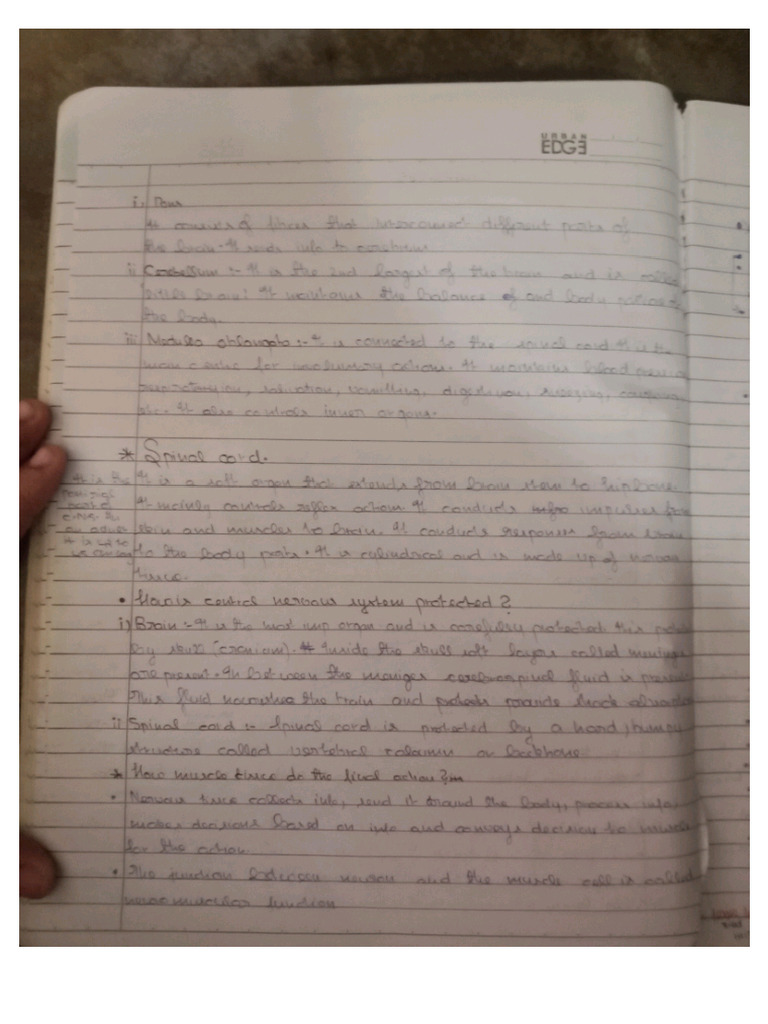 URBAN
EDGE
i) Pons
It consists of fibres that interconnect different parts of
the brain. It sends info to cerebrum
ii Cerebellum :- It is the 2nd largest of the brain and is called
little brain. It maintains the balance of and body
the body.
iii) Medulla oblongata :- It is connected to the spinal cord this is the
main centre for involuntary actions. It maintains blood
salivation, vomitting, digestion, sneezing, coughing
etc. It also controls inner organs.
* Spinal cord.
It is a soft organ that extends from brain stem to hipbone.
It mainly controls reflex action. It conducts impulses from
skin and muscles to brain. It conducts responses from brain
to the body parts. It is cylindrical and is made up of
tissue.
• How is central nervous system protected?
i) Brain :- It is the most imp organ and is carefully protected. this is
by skull (cranium). Inside the skull soft layers called
are present. In between the cerebrospinal fluid is present
This fluid nourishes the brain and protects
ii Spinal cord :- Spinal cord is protected by a hard, bumpy
structure called vertebral column or backbone.
* How muscle tissue do the final action?
• Nervous tissue collects info, send it around the body, process info,
makes decisions based on info and conveys decision to muscle
for the action.
• The junction between neuron and the muscle cell is called
junction